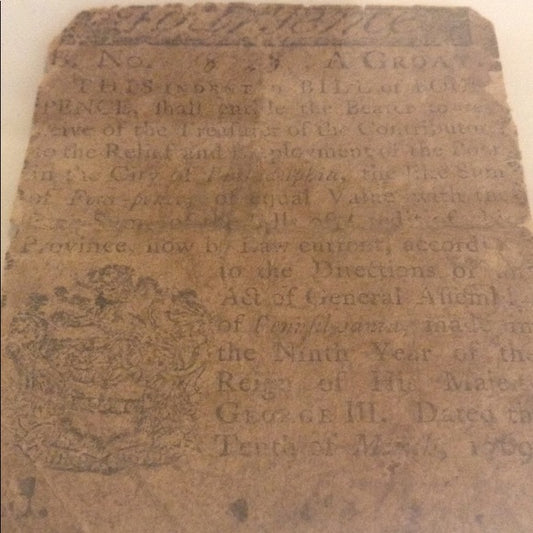 Four-Pence
B. No. A GROAT.
THIS INDENTED BILL of FOUR
PENCE, shall entitle the Bearer to re-
ceive of the Treasurer of the Contributors
to the Relief and Employment of the Poor
in the City of Philadelphia, the like Sum
of Four-pence, of equal Value with the
same Sum of the Bills of Credit of this
Province, now by Law current, according
to the Directions of an
Act of General Assembly
of Pennsylvania, made in
the Ninth Year of the
Reign of His Majesty
GEORGE III. Dated the
Tenth of March, 1769